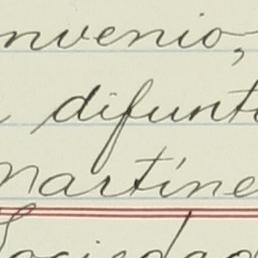 nvenio,
difunt
Martine
Sociedad